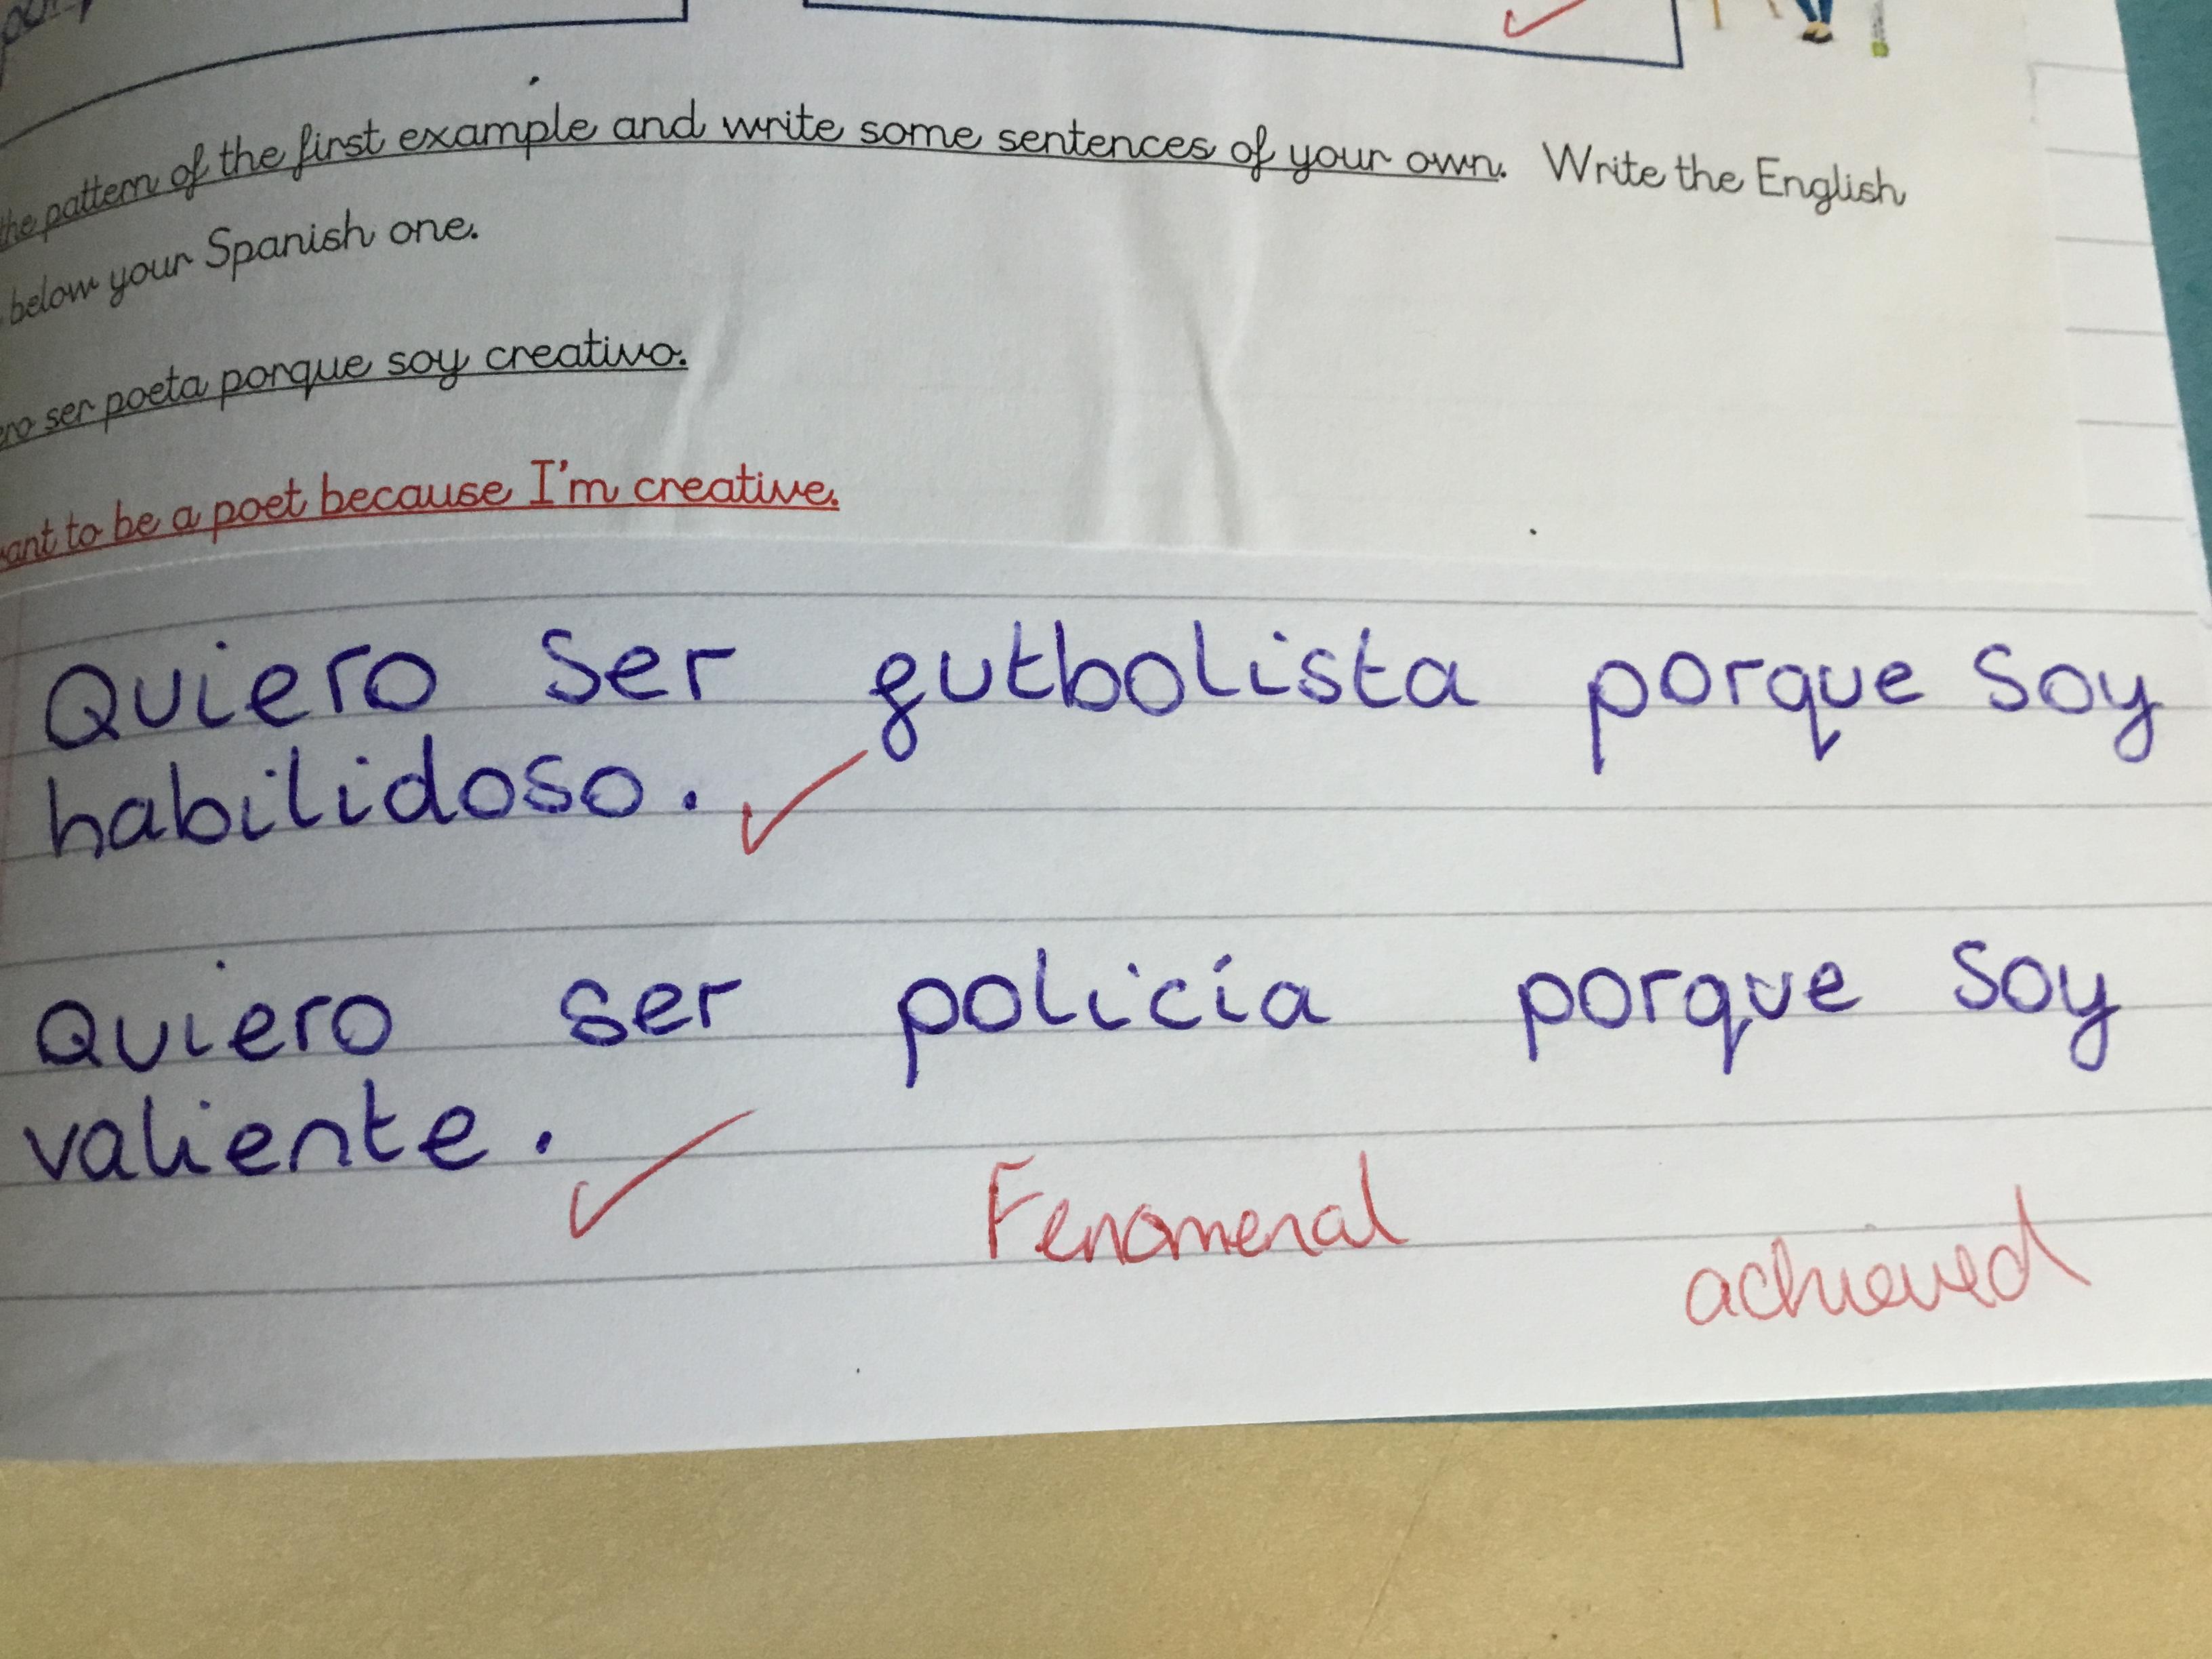 the pattern of the first example and write some sentences of your own. Write the English
below your Spanish one.
ser poeta porque soy creativo.
to be a poet because I'm creative.
Quiero ser futbolista porque soy
habilidoso.
Quiero ser policía porque soy
valiente.
Fenomenal
achieved